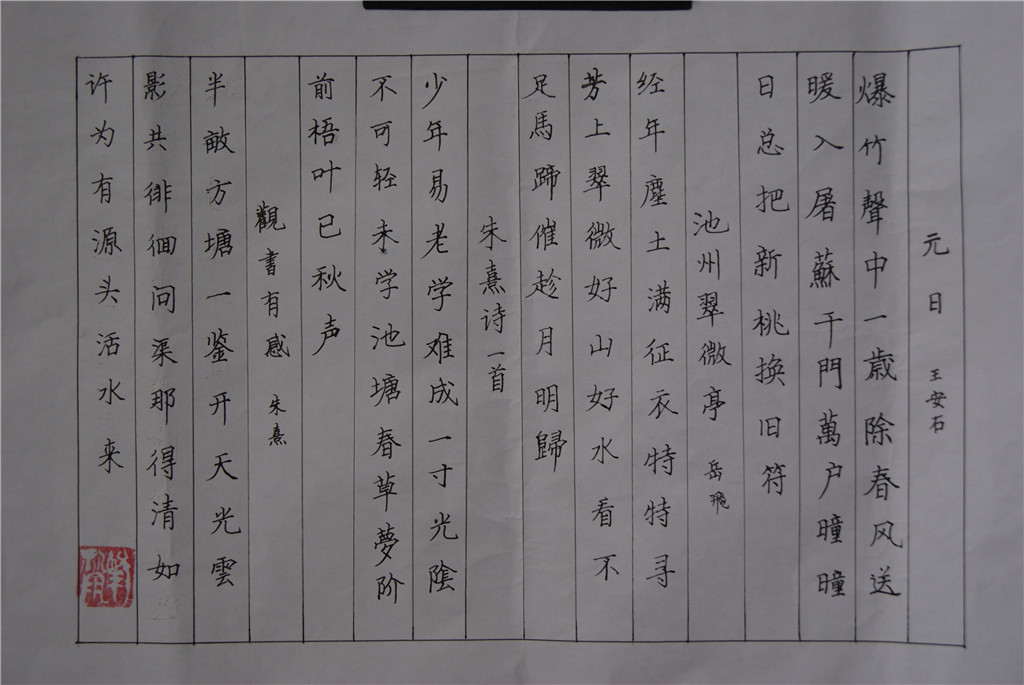 元日 王安石
爆竹聲中一歲除春风送
暖入屠蘇千門萬户曈曈
日总把新桃换旧符
池州翠微亭 岳飛
经年塵土满征衣特特寻
芳上翠微好山好水看不
足馬蹄催趁月明歸
朱熹诗一首
少年易老学难成一寸光陰
不可轻未学池塘春草夢阶
前梧叶已秋声
觀書有感 朱熹
半敵方塘一鉴开天光雲
影共徘徊问渠那得清如
许为有源头活水来